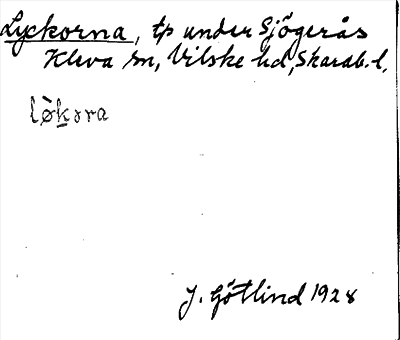 Lyckorna, tp under Sjögerås
Kleva sn, Vilske hd, Skarab. l.
lø̀kɔra
J. Götlind 1928